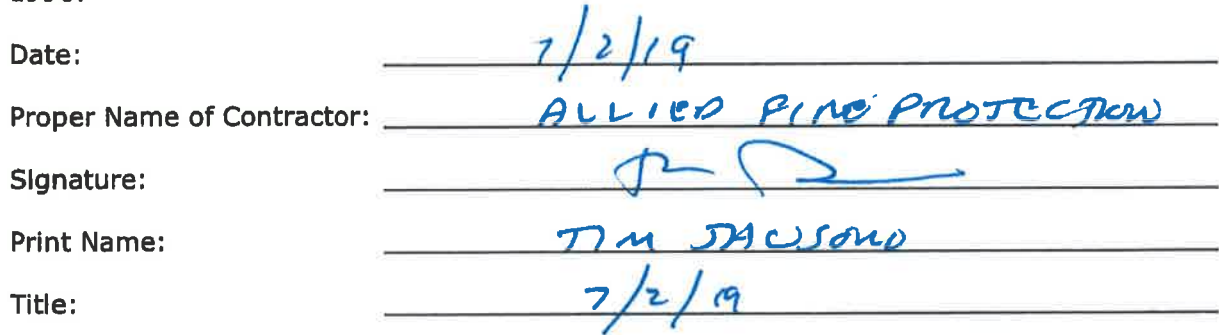 Date: 7/2/19
Proper Name of Contractor: ALLIED FIRE PROTECTION
Signature:
Print Name: TIM
Title: 7/2/19